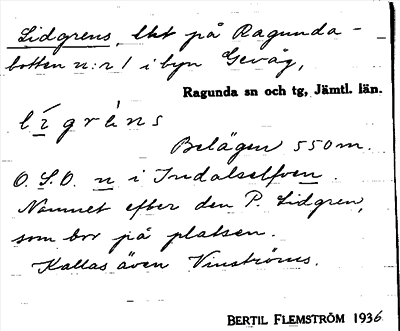 Lidgrens, lht på Ragunda-
botten n:r 1 i byn Gevåg,
Ragunda sn och tg, Jämtl. län.
lígrèns
Belägen 550 m.
O.S.O. n i Indalselfven.
Namnet efter den P. Lidgren,
som bor på platsen.
Kallas även Vinströms.
BERTIL FLEMSTRÖM 1936